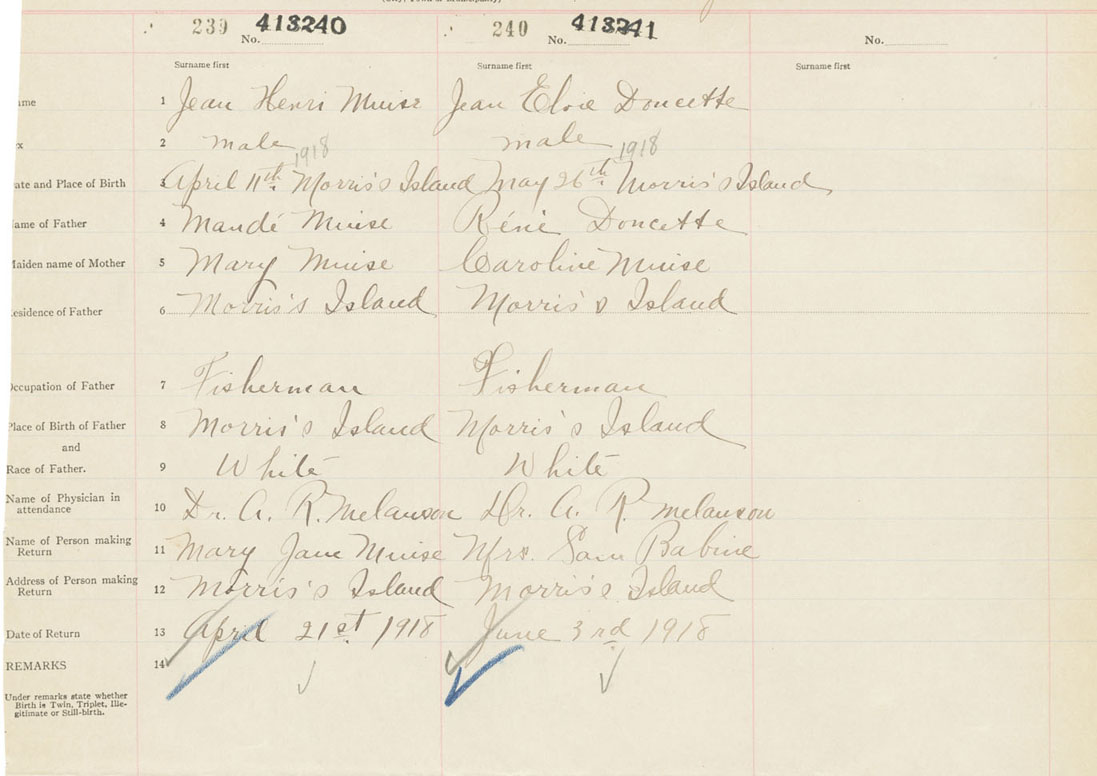 239 413240 240 413241
No. No. No.
Surname first Surname first Surname first
ame 1 Jean Henri Muise Jean Elvie Doucette
x 2 male male
1918 1918
ate and Place of Birth 3 April 11th. Morris's Island May 26th. Morris's Island
ame of Father 4 Mandé Muise Réné Doucette
Maiden name of Mother 5 Mary Muise Caroline Muise
esidence of Father 6 Morris's Island Morris's Island
Occupation of Father 7 Fisherman Fisherman
Place of Birth of Father 8 Morris's Island Morris's Island
and
Race of Father. 9 White White
Name of Physician in
attendance 10 Dr. A. R. Melanson Dr. A. R. Melanson
Name of Person making
Return 11 Mary Jane Muise Mrs. Sam Babine
Address of Person making
Return 12 Morris's Island Morris's Island
Date of Return 13 April 21st 1918 June 3rd 1918
REMARKS 14
Under remarks state whether
Birth is Twin, Triplet, Ille-
gitimate or Still-birth.